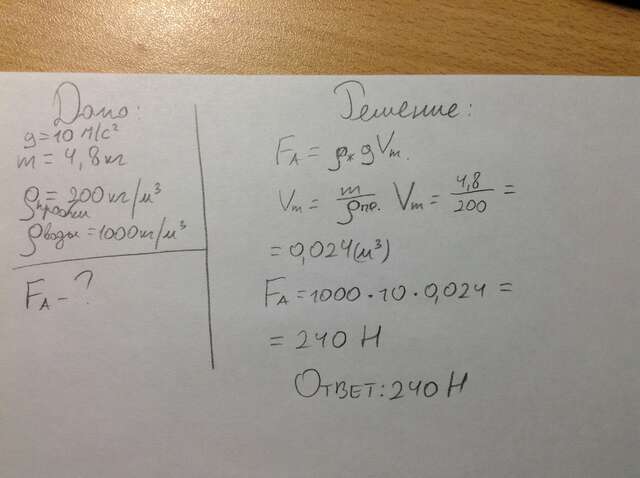 Дано:
g=10 м/с²
m = 4,8кг
ρпробки = 200кг/м³
ρводы =1000кг/м³
FA – ?
Решение:
FA = ρж gVт.
Vт = m/ρпр. Vт = 4,8/200 =
= 0,024(м³)
FA =1000·10·0,024 =
= 240 Н
Ответ: 240 Н